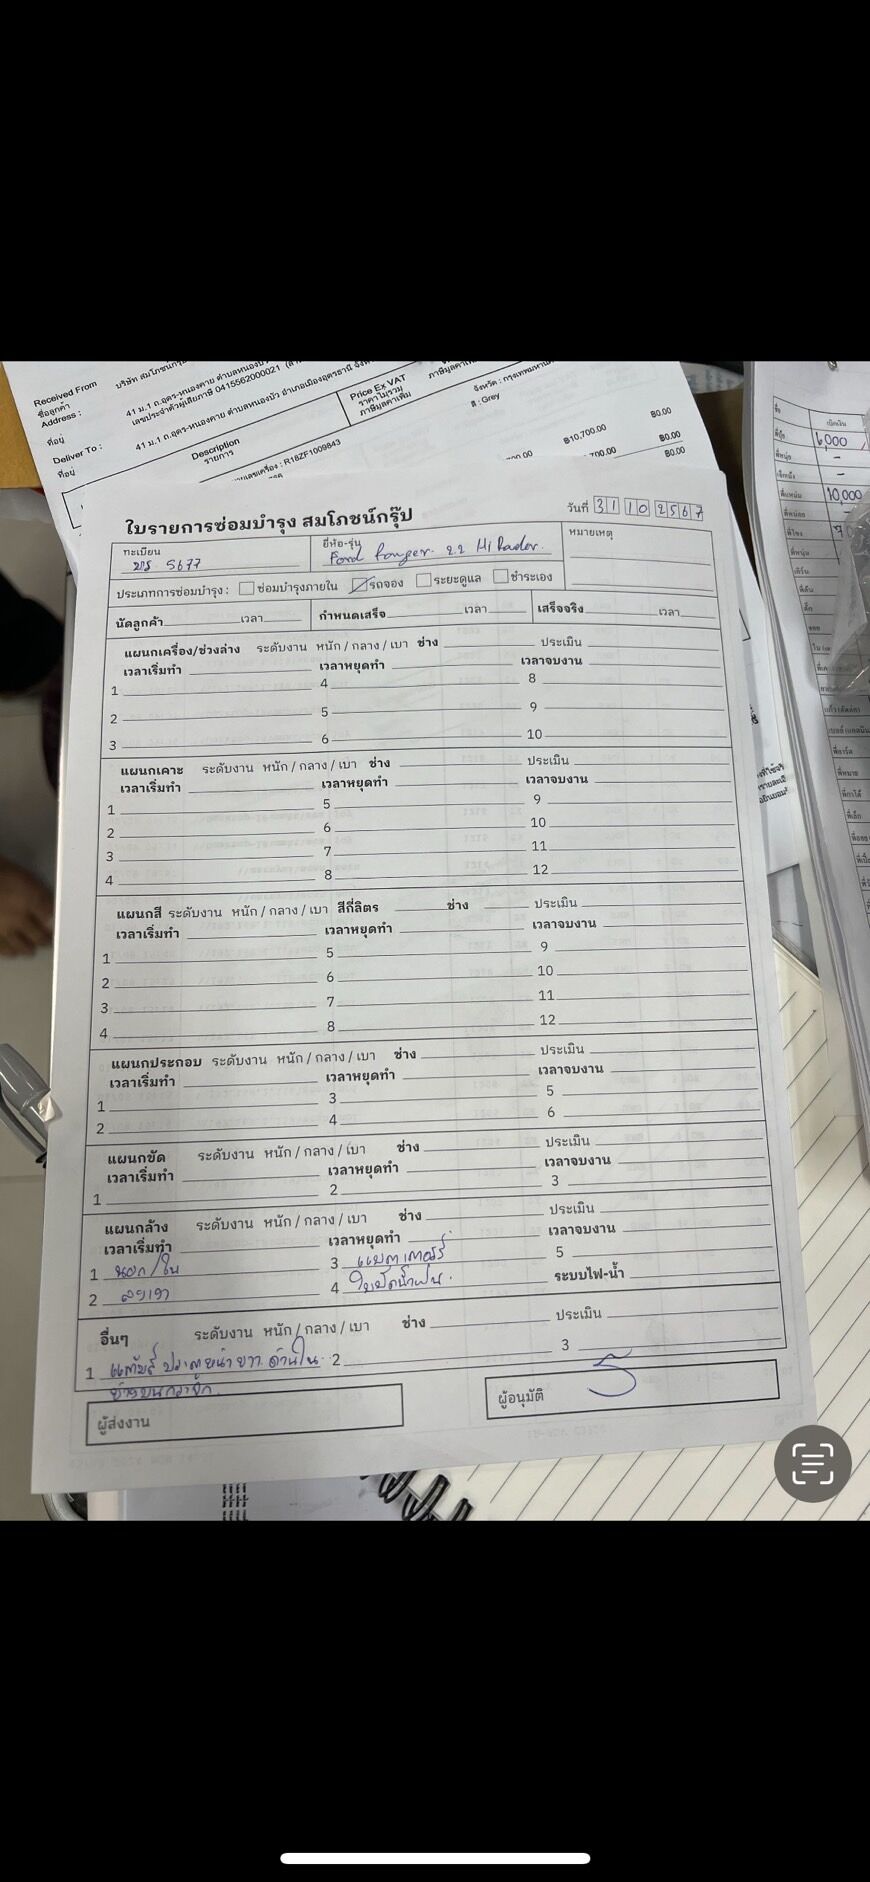 Received From บริษัท สมโภชน์กรุ๊ป
ชื่อลูกค้า
Address : 41 ม.1 ถ.อุดร-หนองคาย ตำบลหนองบัว
เลขประจำตัวผู้เสียภาษี 0415562000021
ที่อยู่
Deliver To : 41 ม.1 ถ.อุดร-หนองคาย ตำบลหนองบัว อำเภอเมืองอุดรธานี
ที่อยู่
Description
รายการ
Price Ex VAT
ราคาไม่รวม
ภาษีมูลค่าเพิ่ม
จังหวัด : กรุงเทพมหานคร
สี : Grey
เลขเครื่อง : R18ZF1009843
฿10,700.00
฿0.00
฿0.00
฿0.00
ชื่อ เบิกเงิน
6,000
10,000
ใบรายการซ่อมบำรุง สมโภชน์กรุ๊ป
วันที่ 31 10 2567
ทะเบียน 5677
ยี่ห้อ-รุ่น Ford Ranger 2.2 Hi Rader.
หมายเหตุ
ประเภทการซ่อมบำรุง : ซ่อมบำรุงภายใน รถจอง ระยะดูแล ชำระเอง
นัดลูกค้า เวลา กำหนดเสร็จ เวลา เสร็จจริง เวลา
แผนกเครื่อง/ช่วงล่าง ระดับงาน หนัก / กลาง / เบา ช่าง ประเมิน
เวลาเริ่มทำ เวลาหยุดทำ เวลาจบงาน
1 4 8
2 5 9
3 6 10
แผนกเคาะ ระดับงาน หนัก / กลาง / เบา ช่าง ประเมิน
เวลาเริ่มทำ เวลาหยุดทำ เวลาจบงาน
1 5 9
2 6 10
3 7 11
4 8 12
แผนกสี ระดับงาน หนัก / กลาง / เบา สีกี่ลิตร ช่าง ประเมิน
เวลาเริ่มทำ เวลาหยุดทำ เวลาจบงาน
1 5 9
2 6 10
3 7 11
4 8 12
แผนกประกอบ ระดับงาน หนัก / กลาง / เบา ช่าง ประเมิน
เวลาเริ่มทำ เวลาหยุดทำ เวลาจบงาน
1 3 5
2 4 6
แผนกขัด ระดับงาน หนัก / กลาง / เบา ช่าง ประเมิน
เวลาเริ่มทำ เวลาหยุดทำ เวลาจบงาน
1 2 3
แผนกล้าง ระดับงาน หนัก / กลาง / เบา ช่าง ประเมิน
เวลาเริ่มทำ เวลาหยุดทำ เวลาจบงาน
1 นอก/ใน 3 แบตเตอรี่ 5
2 4 ใบปัดน้ำฝน. ระบบไฟ-น้ำ
อื่นๆ ระดับงาน หนัก / กลาง / เบา ช่าง ประเมิน
1 แต้มสี ประตูหน้า ขวา ด้านใน 2 3
ข้างบนกระจก.
ผู้ส่งงาน
ผู้อนุมัติ